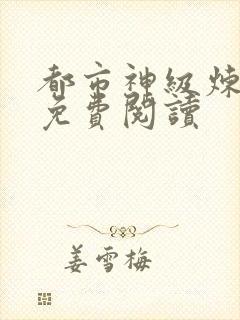 都市神級煉
免費閱讀
姜雪梅